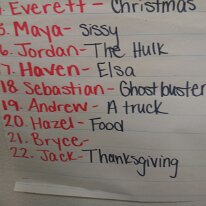 Everett - Christmas
5. Maya - sissy
6. Jordan - The Hulk
17. Haven - Elsa
18 Sebastian - Ghostbuster
19. Andrew - A truck
20. Hazel - Food
21. Bryce -
22. Jack - Thanksgiving